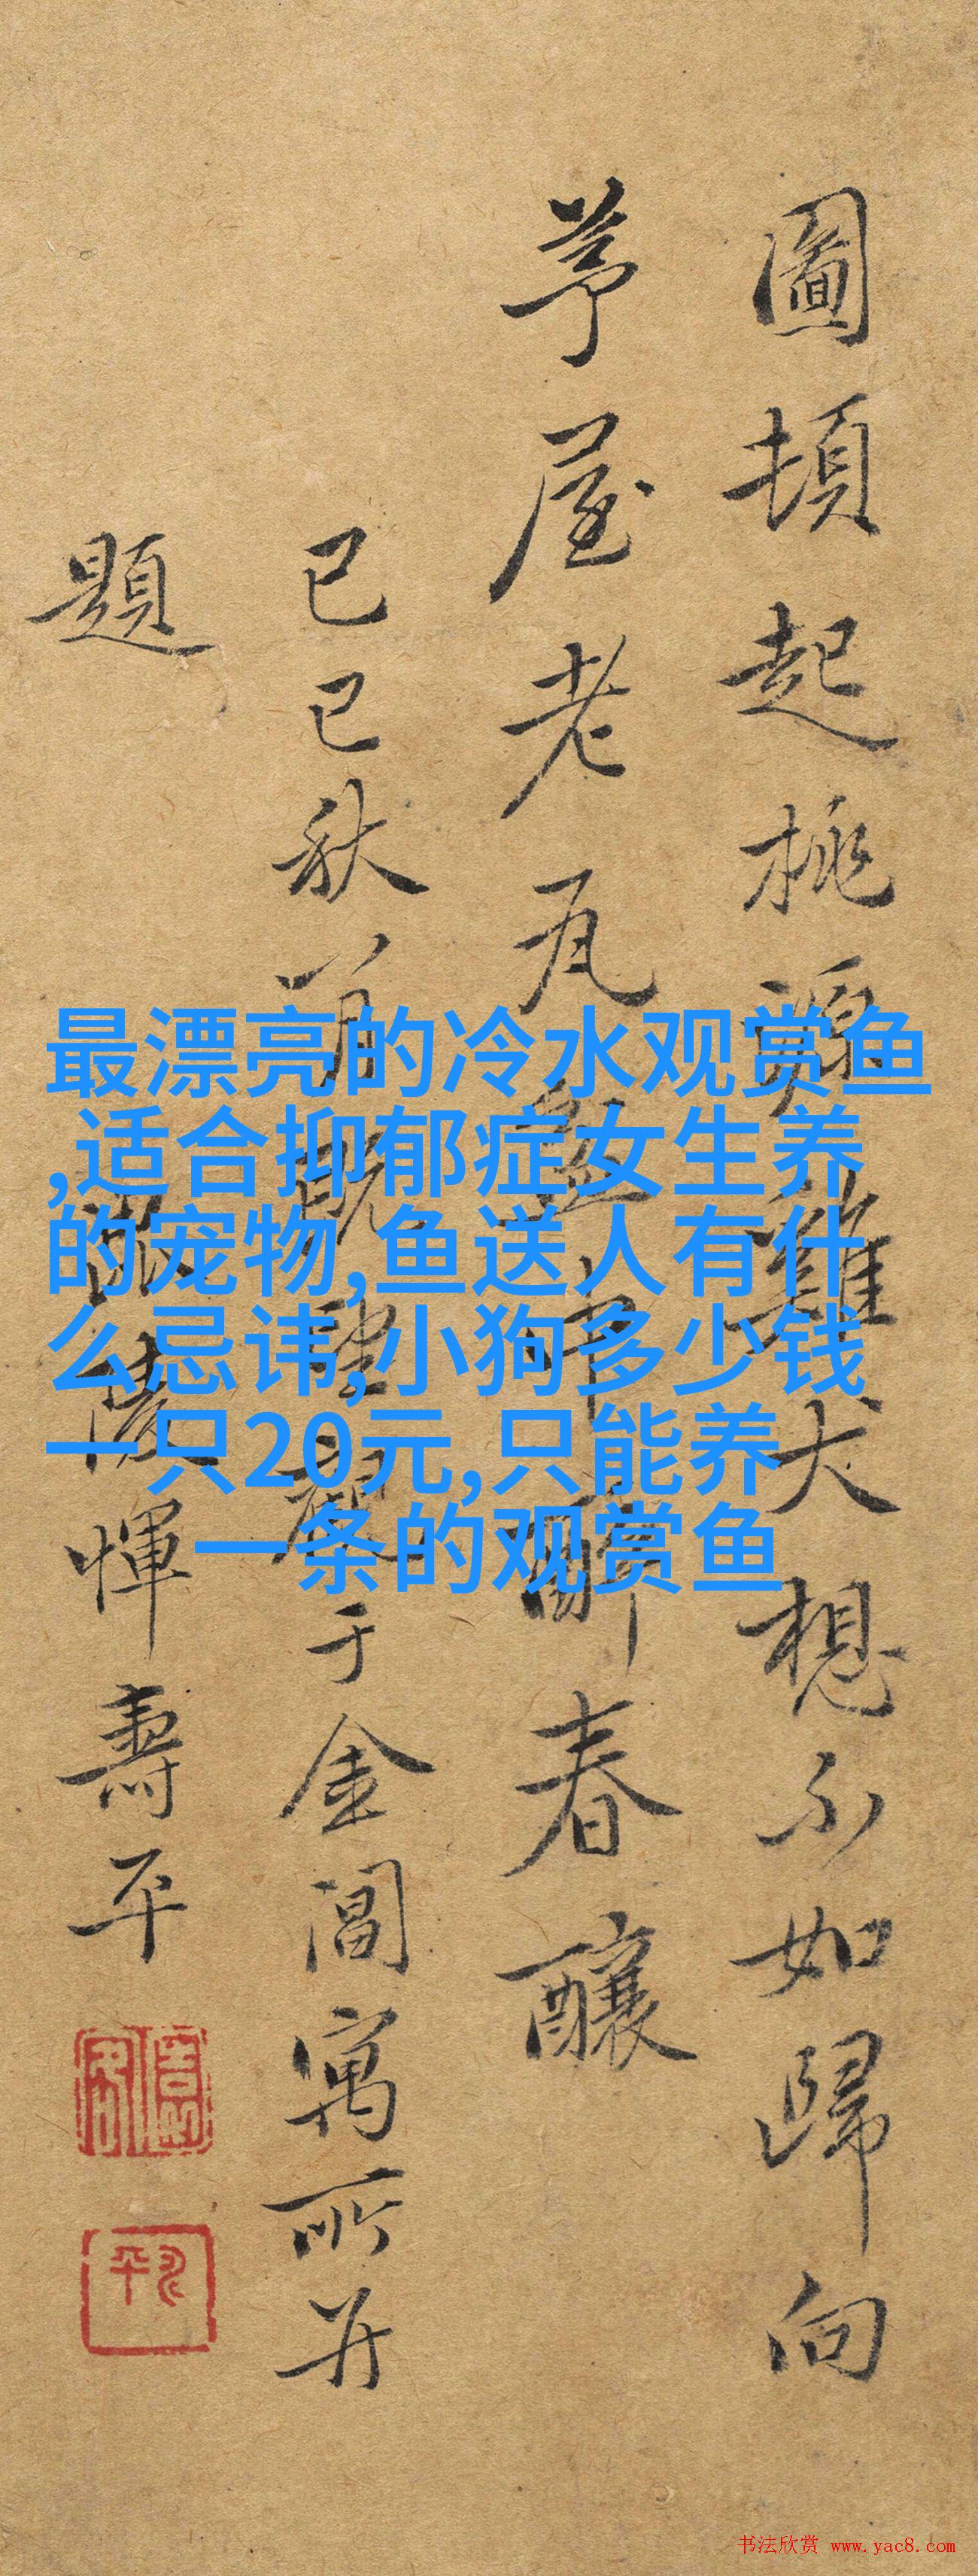 圖頓起桃源雞犬想不如歸向
茅屋老瓦盆中春釀
己巳秋八月既望觀于金閶寓所并
題 陵惲壽平
最漂亮的冷水观赏鱼
,适合抑郁症女生养
的宠物,鱼送人有什
么忌讳,小狗多少钱
一只20元,只能养
一条的观赏鱼
书法欣赏 www.yac8.com